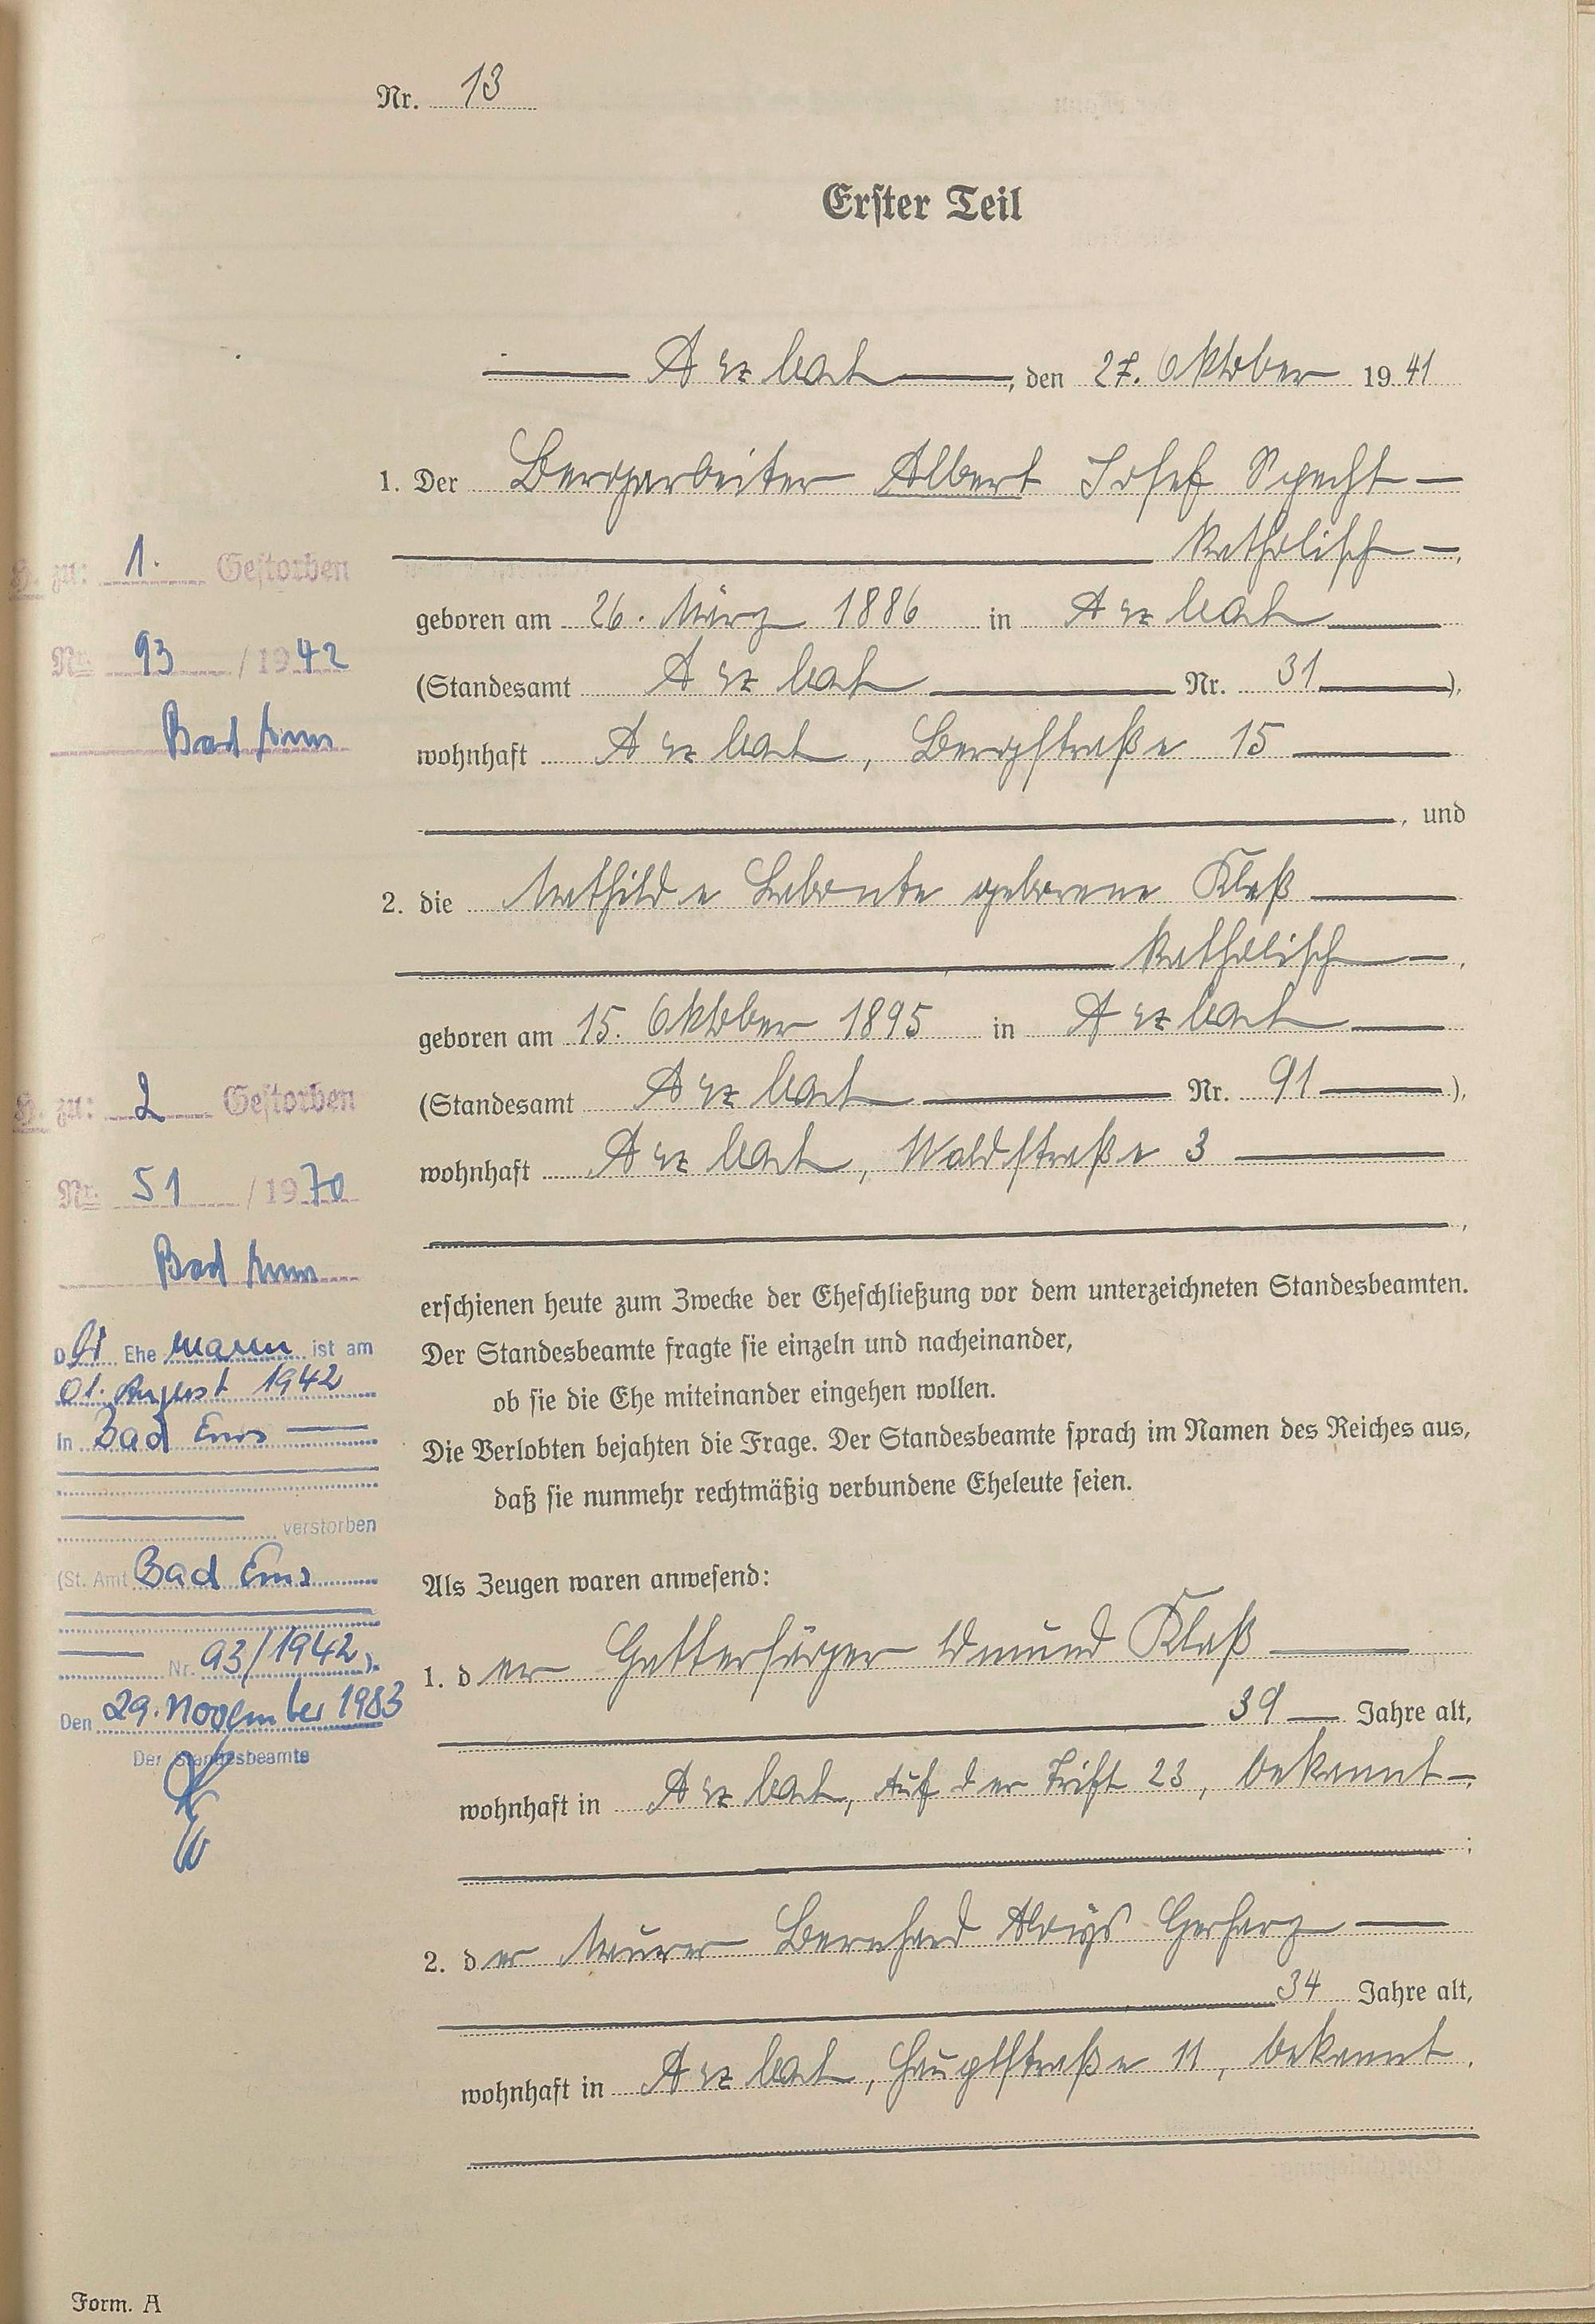 Nr. 13
Erster Teil
Arzbach, den 27. Oktober 1941
1. Der Bergarbeiter Albert Josef Specht
katholisch,
geboren am 26. März 1886 in Arzbach
(Standesamt Arzbach Nr. 31),
wohnhaft Arzbach, Bergstraße 15
, und
2. die Mathilde Labonte geborene Klaß
katholisch,
geboren am 15. Oktober 1895 in Arzbach
(Standesamt Arzbach Nr. 91),
wohnhaft Arzbach, Waldstraße 3
,
erschienen heute zum Zwecke der Eheschließung vor dem unterzeichneten Standesbeamten.
Der Standesbeamte fragte sie einzeln und nacheinander,
ob sie die Ehe miteinander eingehen wollen.
Die Verlobten bejahten die Frage. Der Standesbeamte sprach im Namen des Reiches aus,
daß sie nunmehr rechtmäßig verbundene Eheleute seien.
Als Zeugen waren anwesend:
1. der Gattersäger Edmund Klaß
39 Jahre alt,
wohnhaft in Arzbach, Auf der Trift 23, bekannt
;
2. der Maurer Bernhard Aloys Gerharz
34 Jahre alt,
wohnhaft in Arzbach, Hauptstraße 11, bekannt.
H. zu: 1. Gestorben
Nr. 93 / 1942
Bad Ems
H. zu: 2 Gestorben
Nr. 51 / 1970
Bad Ems
Der Ehemann ist am
01. August 1942
in Bad Ems
verstorben
(St. Amt Bad Ems
Nr. 93/1942).
Den 29. November 1983
Der Standesbeamte
Form. A